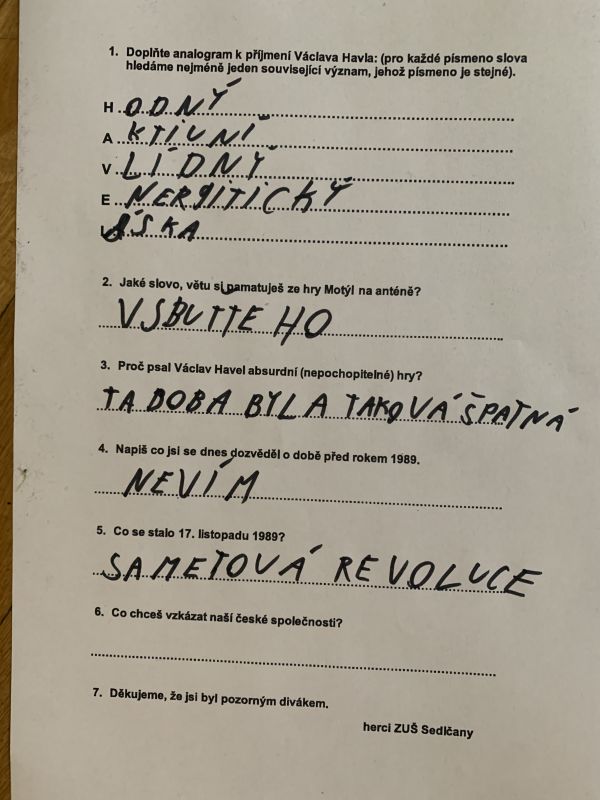 1. Doplňte analogram k příjmení Václava Havla: (pro každé písmeno slova
hledáme nejméně jeden související význam, jehož písmeno je stejné).
H ODNÝ
A KTIVNÍ
V LÍDNÝ
E NERGITICKÝ
LÁSKA
2. Jaké slovo, větu si pamatuješ ze hry Motýl na anténě?
VSBUTTE HO
3. Proč psal Václav Havel absurdní (nepochopitelné) hry?
TA DOBA BYLA TAKOVÁ ŠPATNÁ
4. Napiš co jsi se dnes dozvěděl o době před rokem 1989.
NEVÍM
5. Co se stalo 17. listopadu 1989?
SAMETOVÁ REVOLUCE
6. Co chceš vzkázat naší české společnosti?
7. Děkujeme, že jsi byl pozorným divákem.
herci ZUŠ Sedlčany